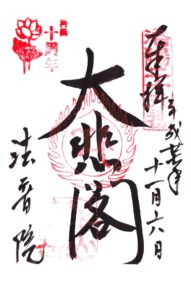 奉拝
平成廿七年
十一月六日
大悲閣
法音院
十周年